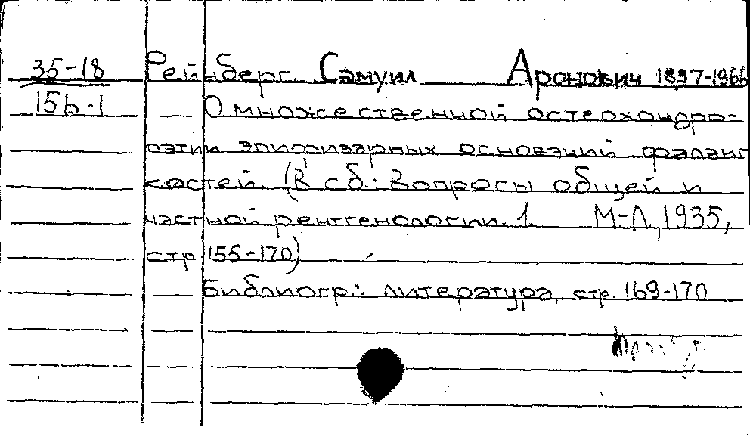 35-18 Рейнберг Самуил Аронович 1897-1966
156-1 О множественной остеохондро-
патии эпифизарных оснований фаланг
костей. (В сб.: Вопросы общей и
частной рентгенологии. 1 М-Л, 1935,
стр 155-170)
Библиогр.: литература, стр. 169-170